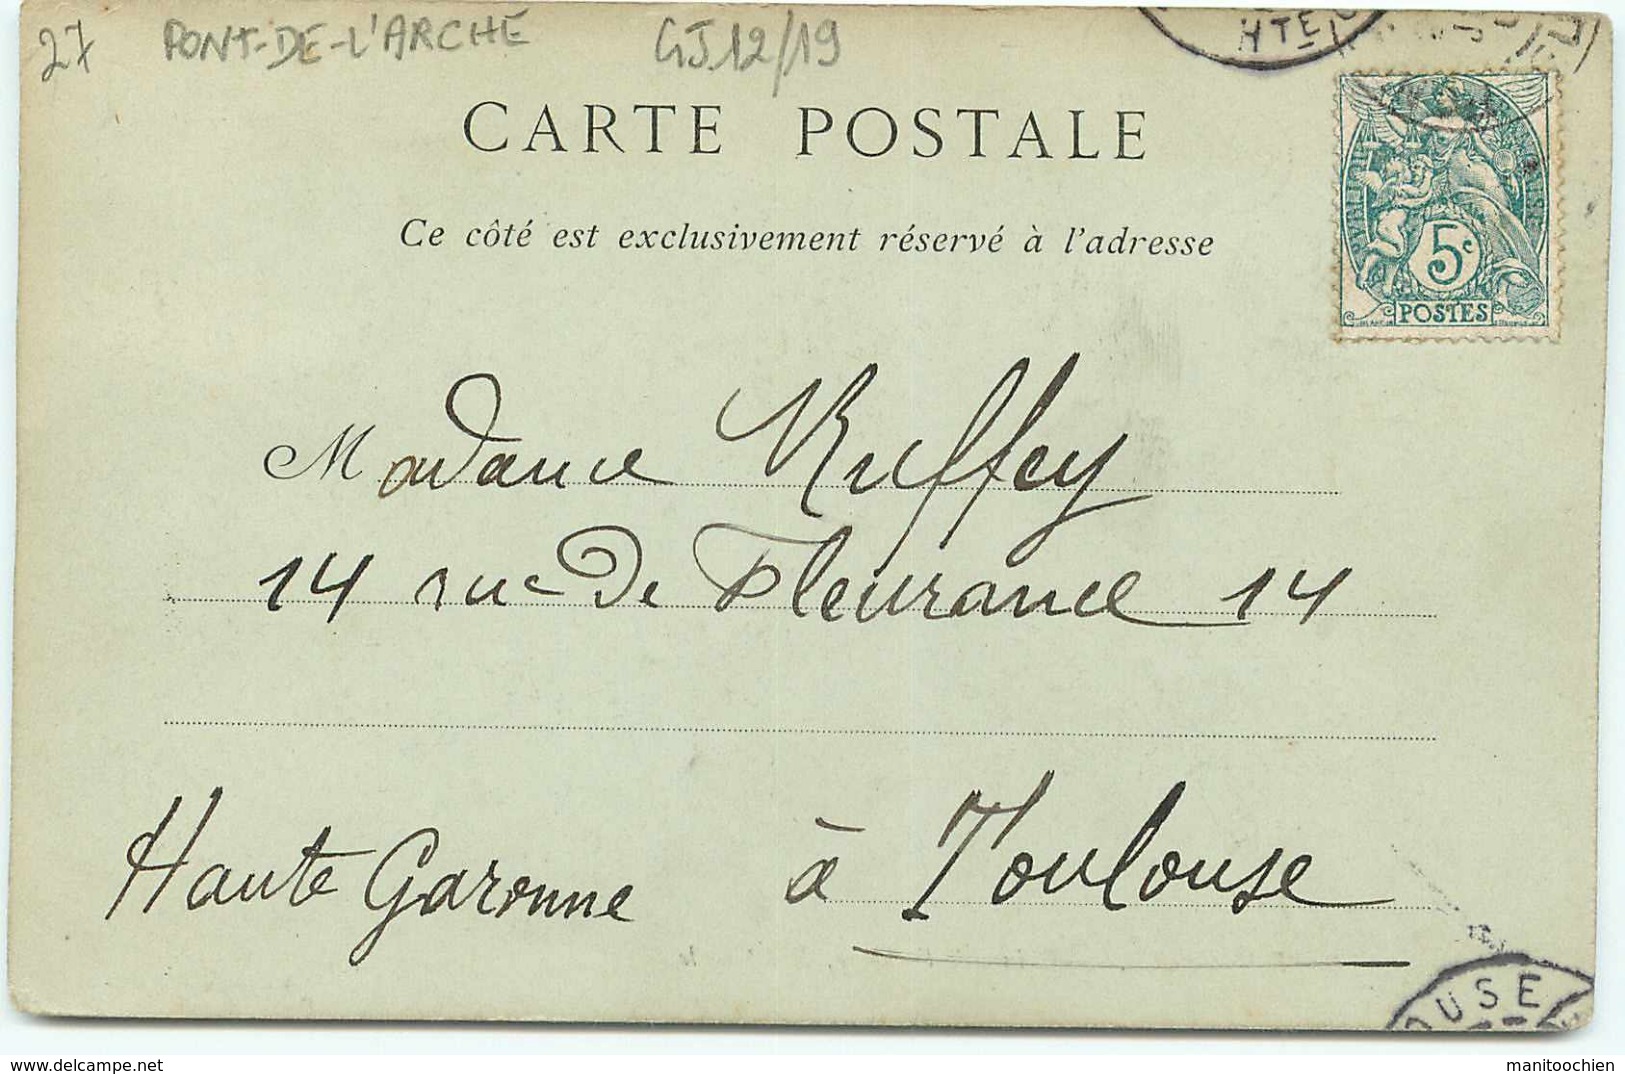 27 PONT-DE-L'ARCHE GJ.12/19
HTE
CARTE POSTALE
Ce côté est exclusivement réservé à l'adresse
5c
POSTES
Madame Ruffey
14 rue de Fleurance 14
Haute Garonne à Toulouse
OUSE
manitoochien